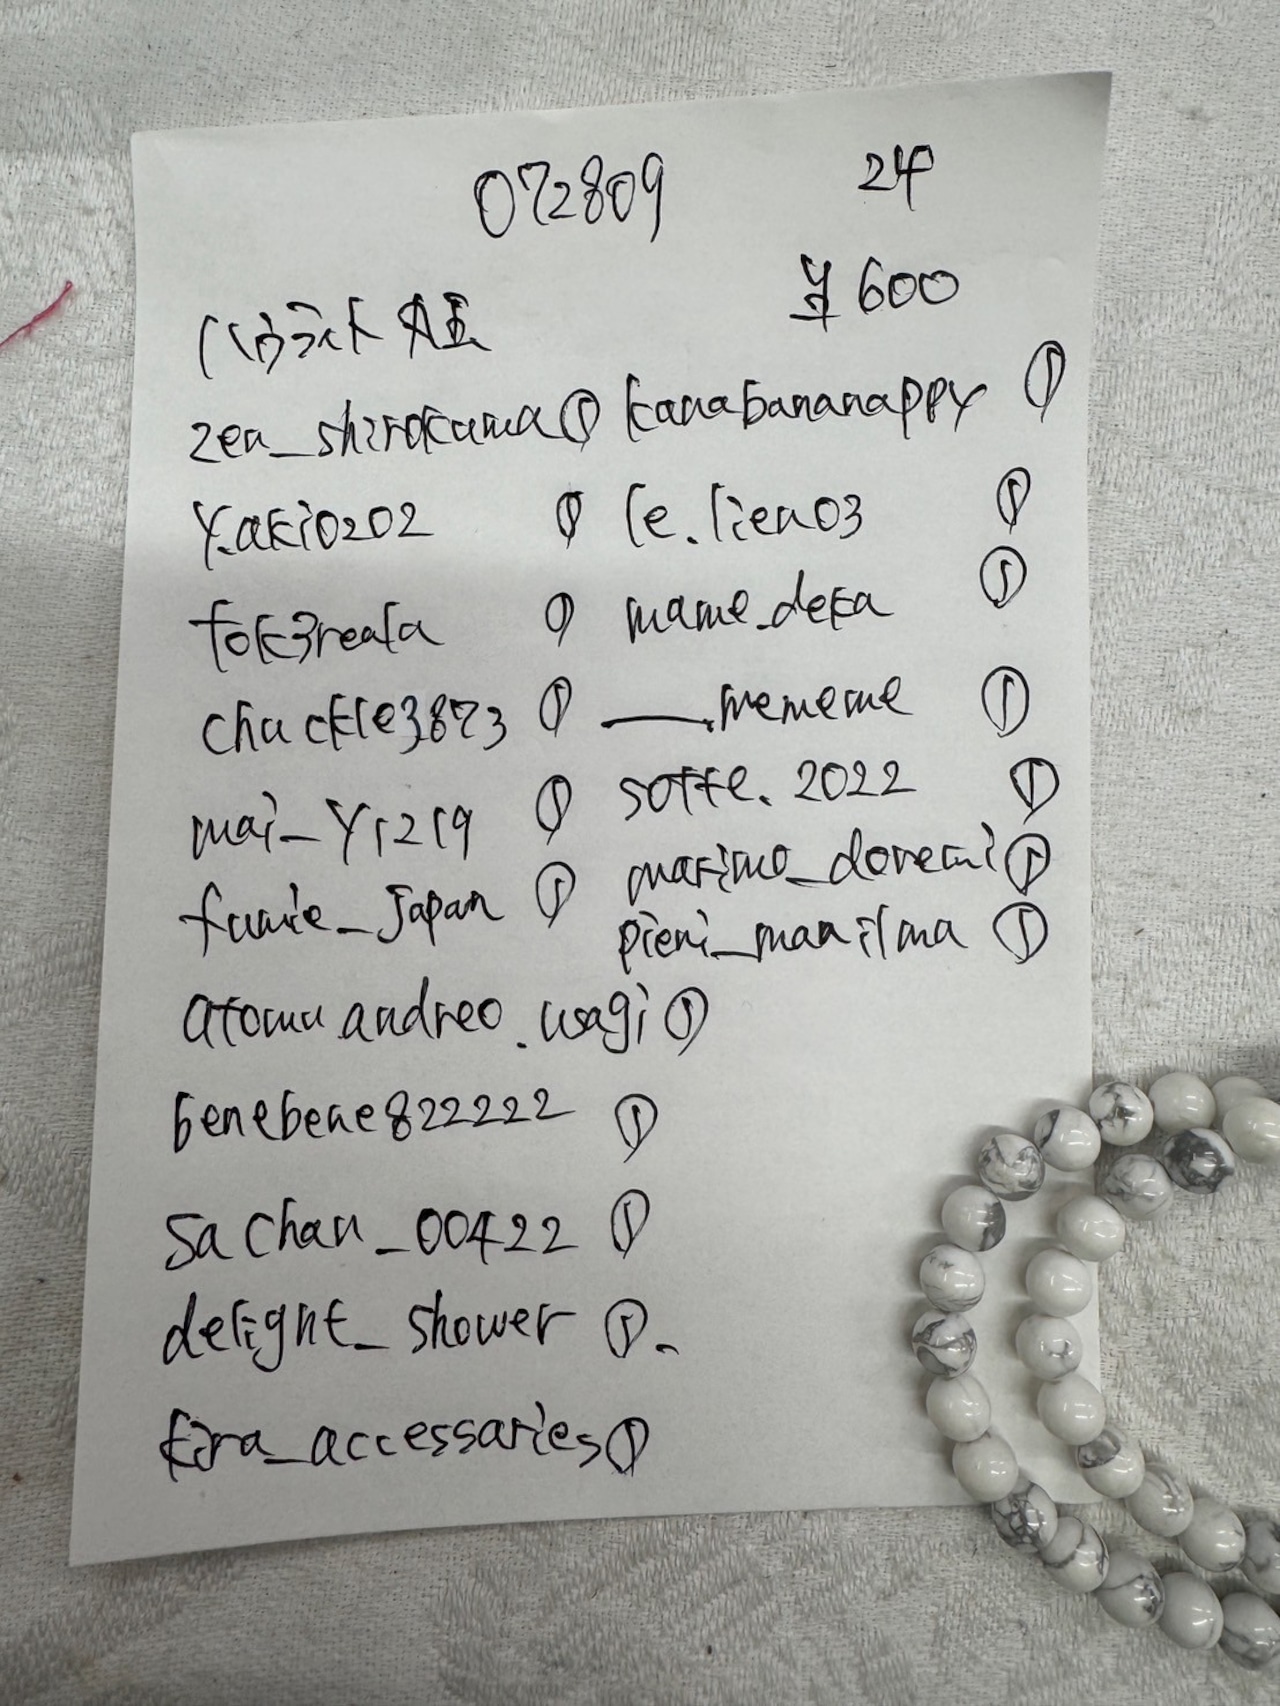 072809 24
¥600
ハウライト 丸玉
zen_shirokuma① kanabananappy ①
y.aki0202 ① le.lien03 ①
tok3reata ① mame.deka ①
chuckle3873 ① ___.mememe ①
mai_y1219 ① sotte.2022 ①
fumie_japan ① marimo_doremi①
pieni_maailma ①
atomu.andreo.usagi①
benebene822222 ①
sachan_00422 ①
delight_shower ①.
kira_accessaries①